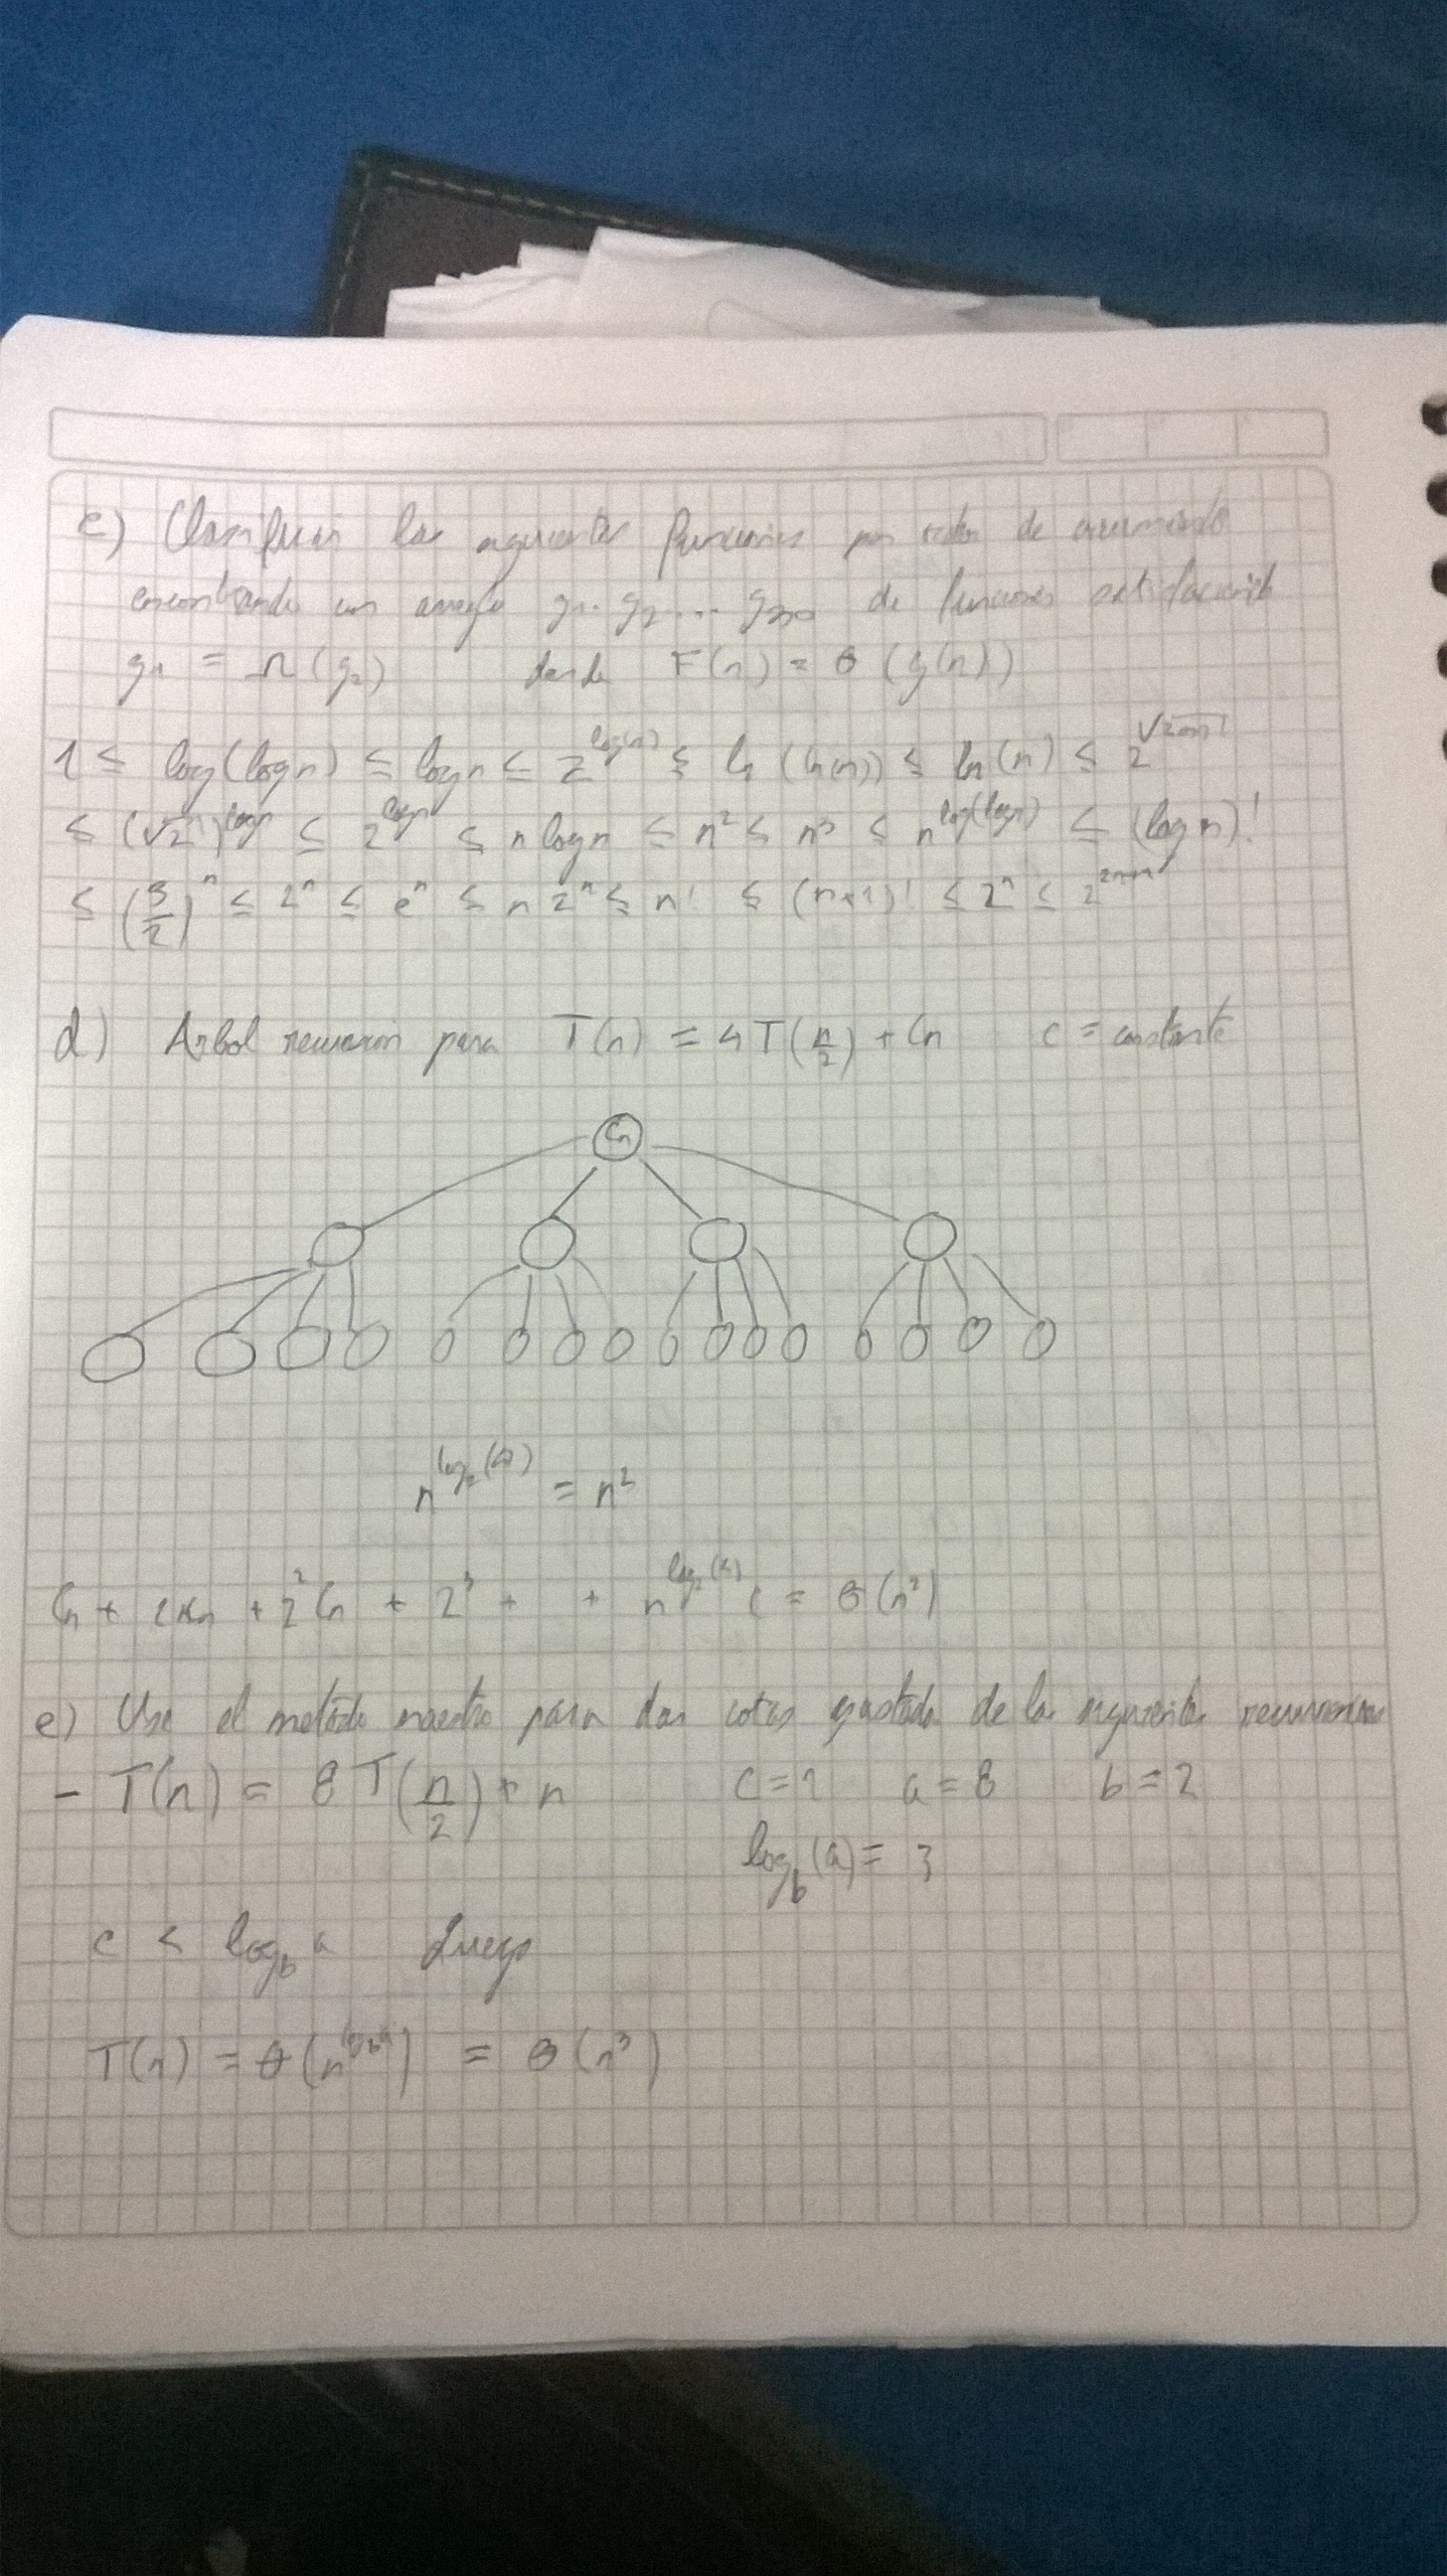 c) Clasificar las siguientes funciones por orden de crecimiento
encontrando un arreglo g1. g2... g30 de funciones
g1 = Ω(g2) donde F(n) = θ(g(n))
1 ≤ log(log n) ≤ log n ≤ 2^log(n) ≤ ln(ln(n)) ≤ ln(n) ≤ 2^√2
≤ (√2)^log n ≤ 2^log n ≤ n log n ≤ n² ≤ n³ ≤ n^log(log n) ≤ (log n)!
≤ (3/2)^n ≤ 2^n ≤ e^n ≤ n 2^n ≤ n! ≤ (n+1)! ≤ 2^n ≤ 2^2^n+1
d) Arbol recursion para T(n) = 4T(n/2) + Cn c = constante
Cn
n^log₂(4) = n²
Cn + + 2²Cn + 2³ + + n^log₂(4) c = θ(n²)
e) Use el metodo maestro para dar cotas ajustada de la siguientes recurrencias
- T(n) = 8T(n/2) + n c = 1 a = 8 b = 2
log_b(a) = 3
c < log_b a Luego
T(n) = θ(n^log_b a) = θ(n³)